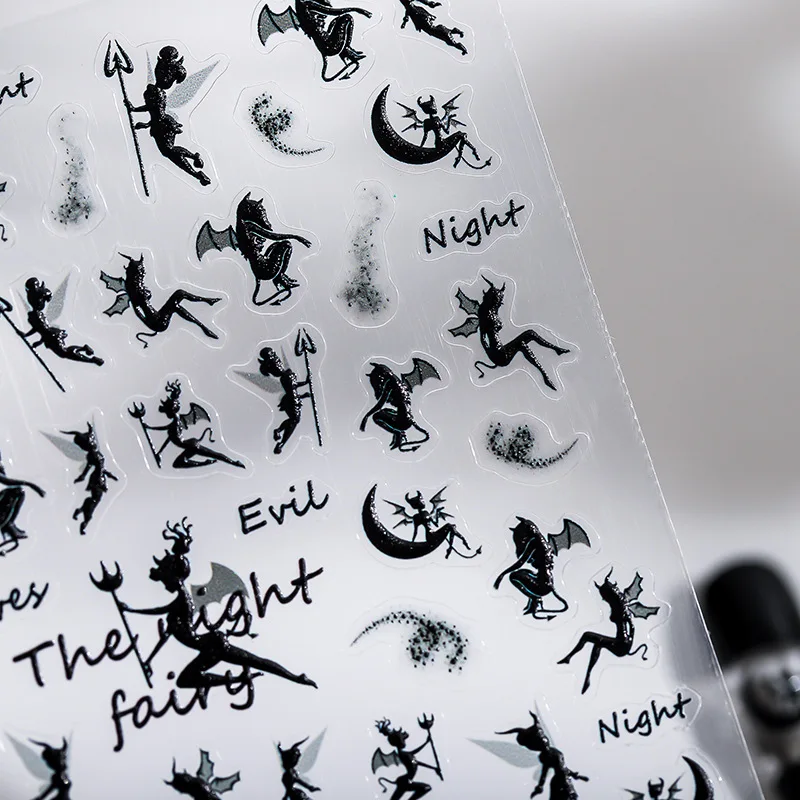 Night
Evil
The Night
fairy
Night